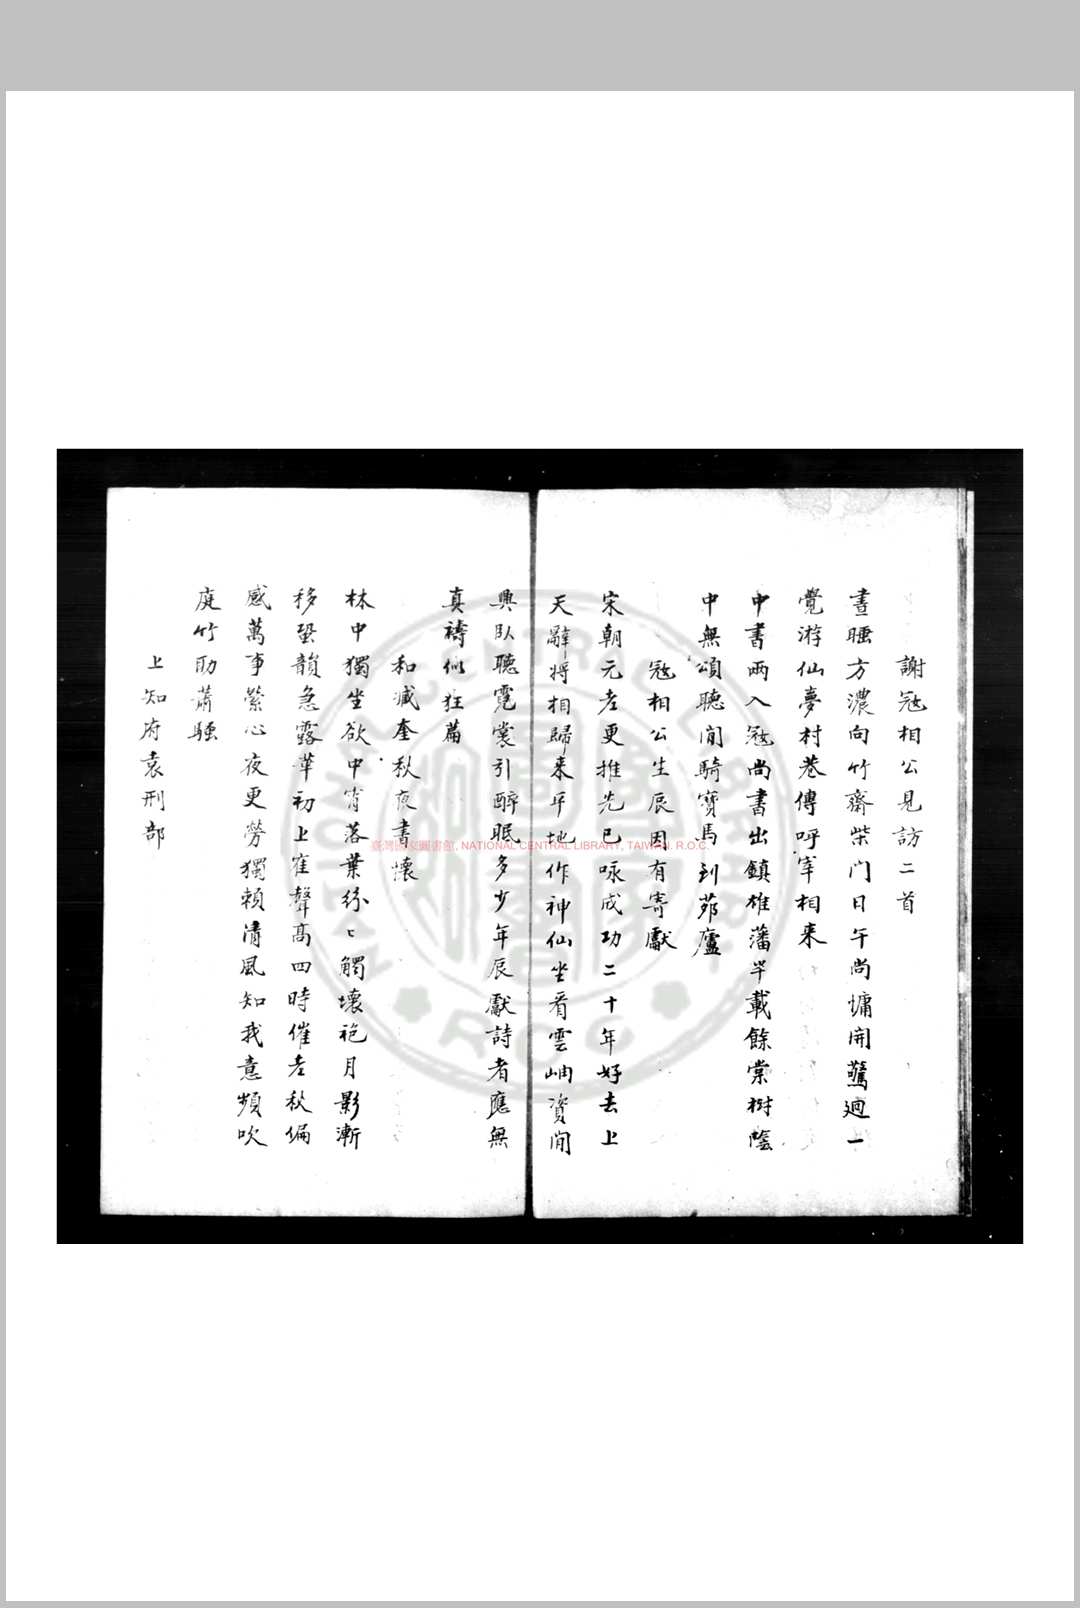 謝冦相公見訪二首
晝睡方濃向竹齋柴門日午尚慵開驚廻一
覺游仙夢村巷傳呼宰相来
中書兩入冦尚書出鎮雄藩半載餘棠樹蔭
中無頌聽閒騎寳馬到茆廬
冦相公生辰因有寄獻
宋朝元老更推先已咏成功二十年好去上
天辭將相歸来平地作神仙坐看雲岫資閒
興臥聽霓裳引醉眠多少年辰獻詩者應無
真禱似狂篇
和臧奎秋夜書懷
林中獨坐欲中宵落葉紛〻觸壞袍月影漸
移蛩韻急露華初上隺聲高四時催老秋偏
感萬事縈心夜更勞獨頼清風知我意頻吹
庭竹助蕭騷
上知府袁刑部
臺灣國家圖書館, NATIONAL CENTRAL LIBRARY, TAIWAN, R.O.C.
NATIONAL CENTRAL LIBRARY
R.O.C